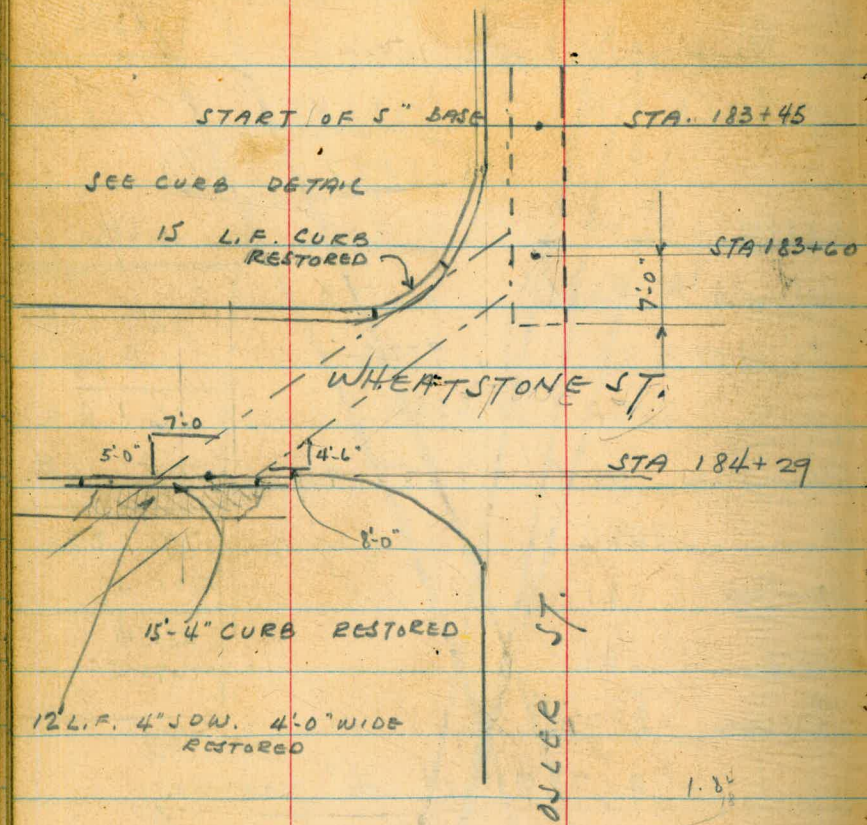 START OF 5" BASE
STA. 183+45
SEE CURB DETAIL
15 L.F. CURB
RESTORED
STA 183+60
7'-0"
WHEATSTONE ST.
7'-0
5'-0"
4'-6"
STA 184+29
8'-0"
15'-4" CURB RESTORED
12 L.F. 4" SDW. 4'-0" WIDE
RESTORED
OSLER ST.